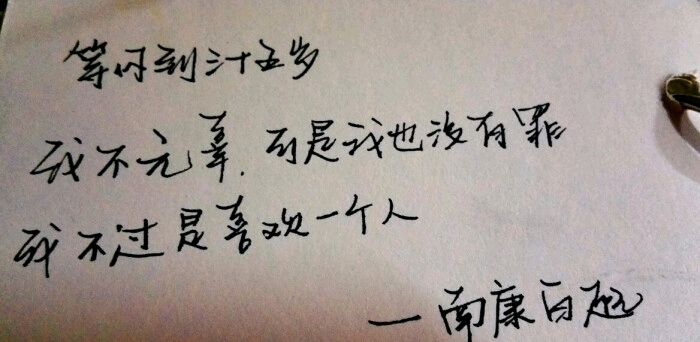 等你到三十五岁
我不无辜，可是我也没有罪
我不过是喜欢一个人
—南康白起